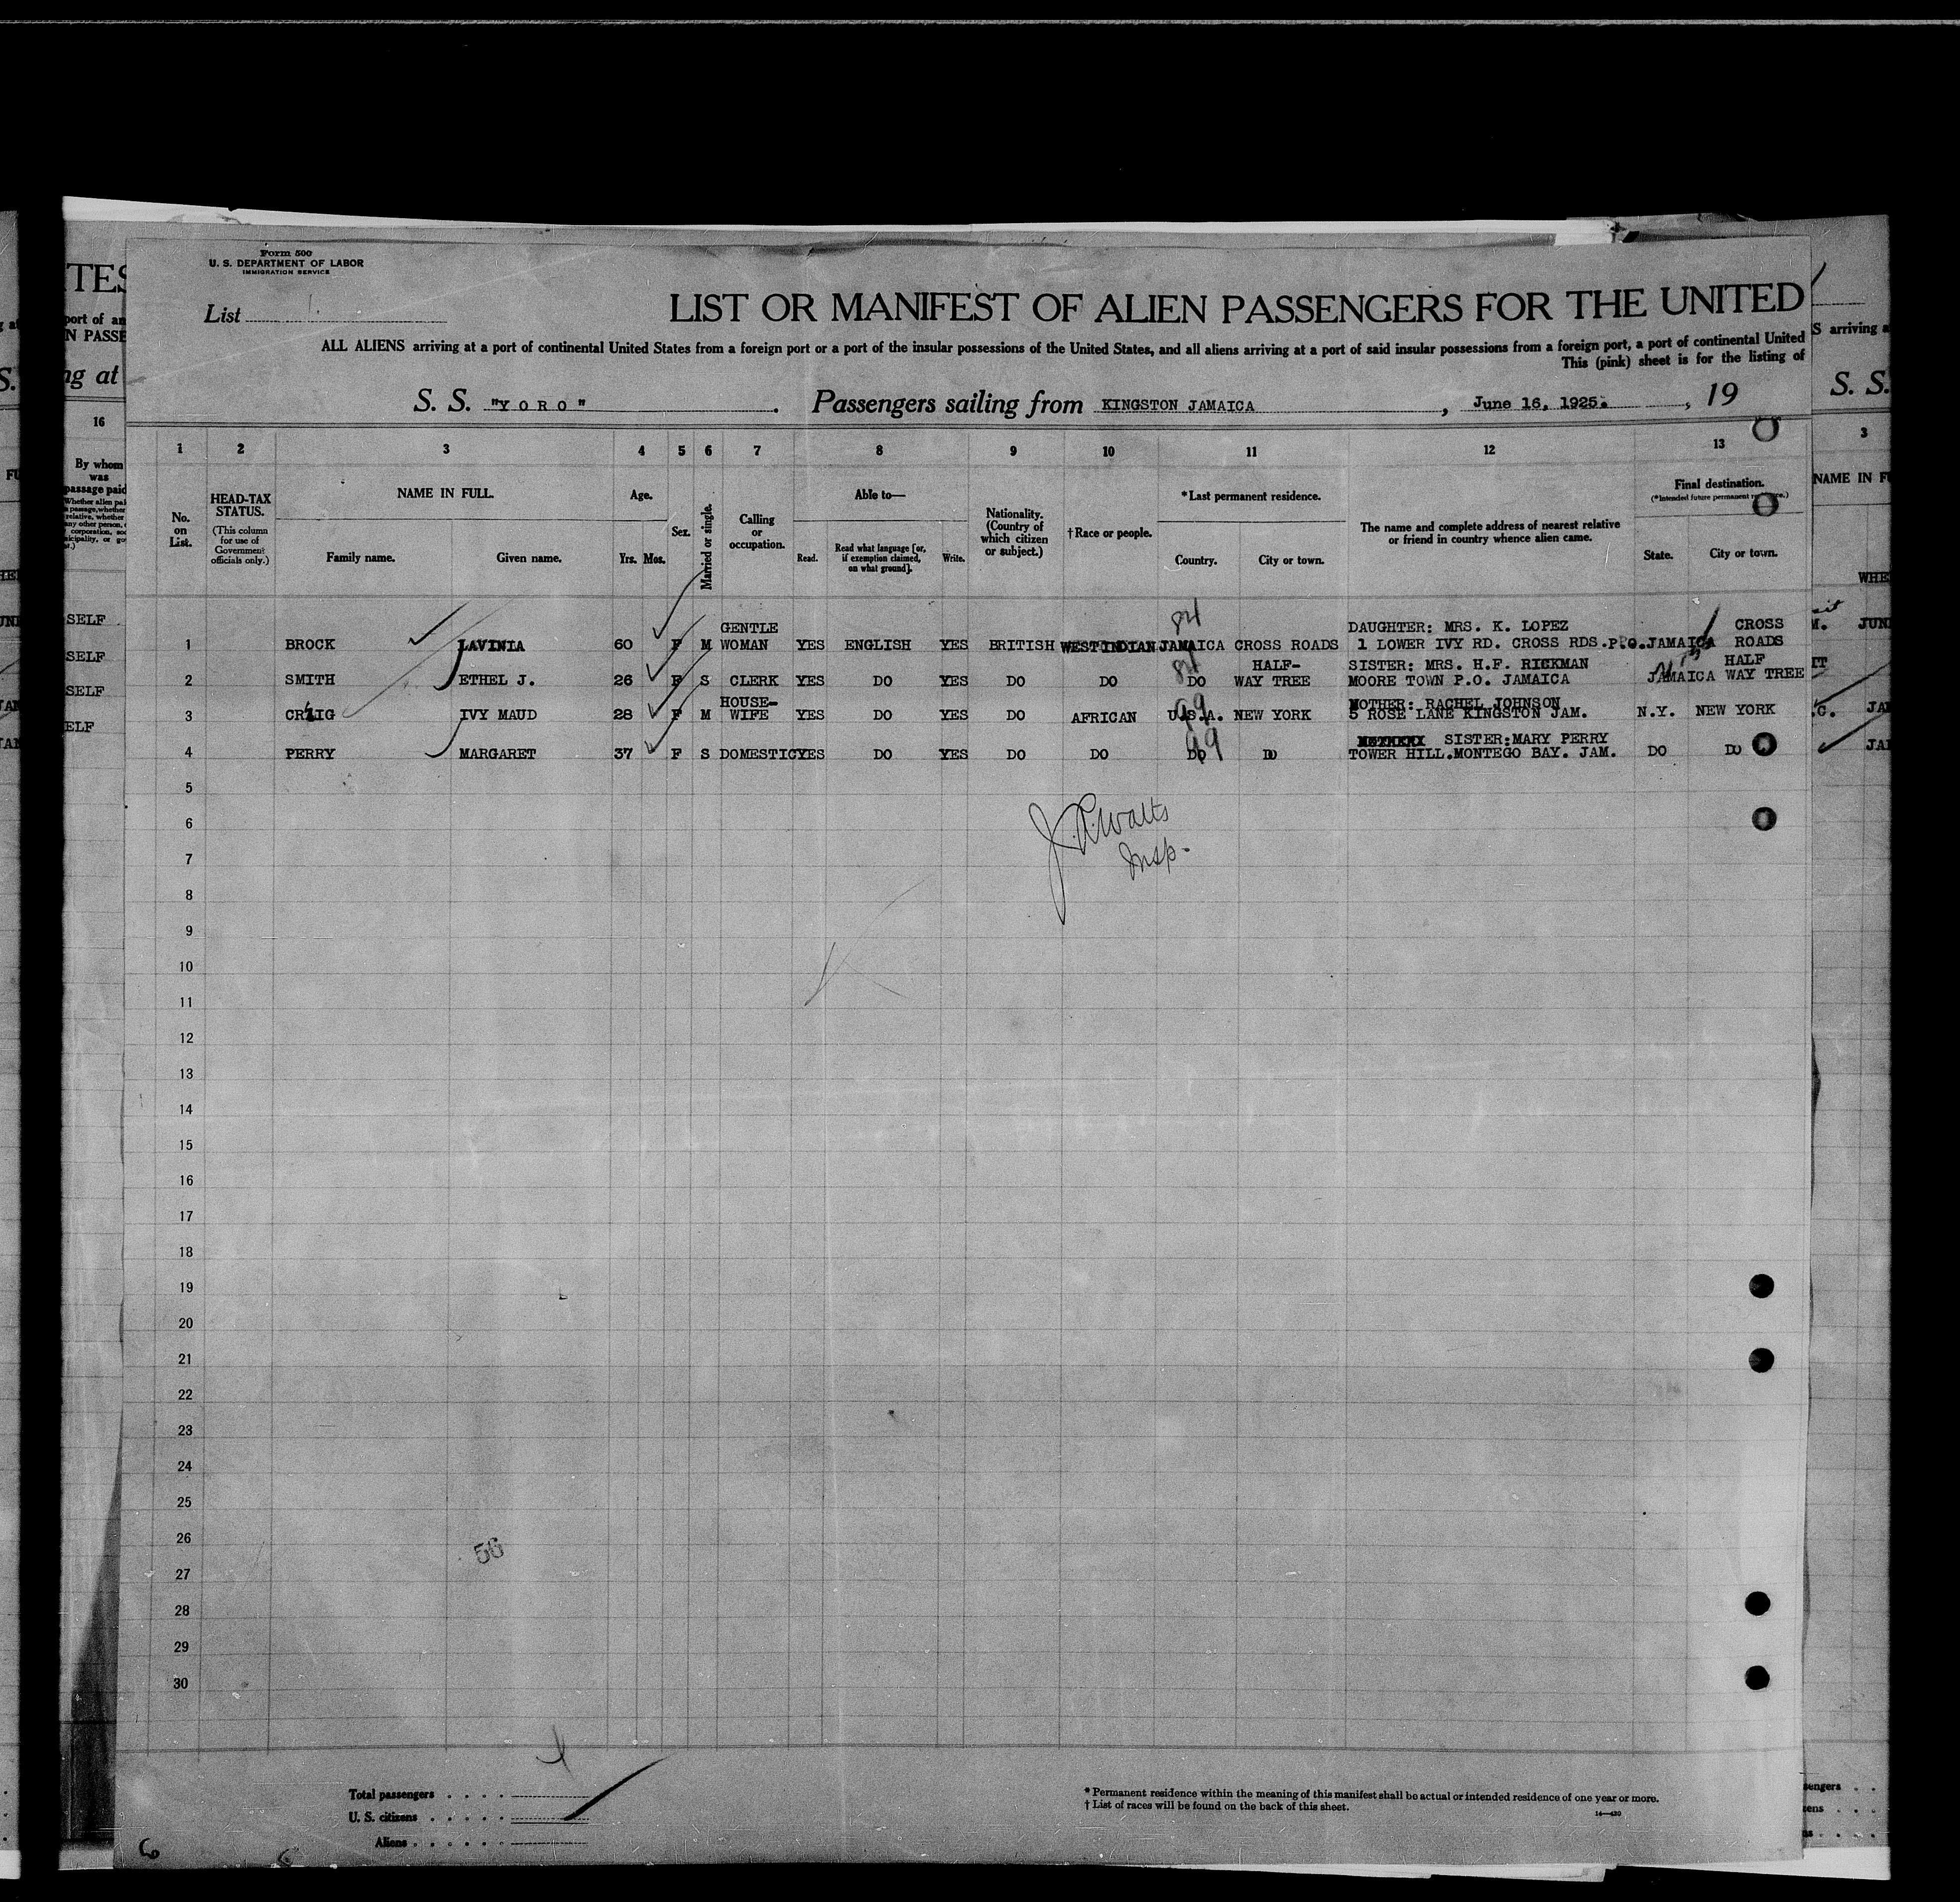 Form 500
U. S. DEPARTMENT OF LABOR
IMMIGRATION SERVICE
List
LIST OR MANIFEST OF ALIEN PASSENGERS FOR THE UNITED
ALL ALIENS arriving at a port of continental United States from a foreign port or a port of the insular possessions of the United States, and all aliens arriving at a port of said insular possessions from a foreign port, a port of continental United
This (pink) sheet is for the listing of
S. S. "YORO". Passengers sailing from KINGSTON JAMAICA, June 16, 1925., 19
1 2 3 4 5 6 7 8 9 10 11 12 13
No. on List.
HEAD-TAX STATUS.
(This column for use of Government officials only.)
NAME IN FULL.
Family name. Given name.
Age.
Yrs. Mos.
Sex.
Married or single.
Calling or occupation.
Able to—
Read. Read what language [or, if exemption claimed, on what ground]. Write.
Nationality. (Country of which citizen or subject.)
†Race or people.
*Last permanent residence.
Country. City or town.
The name and complete address of nearest relative or friend in country whence alien came.
Final destination.
(*Intended future permanent
State. City or town.
84
GENTLE DAUGHTER: MRS. K. LOPEZ CROSS
1 BROCK LAVINIA 60 F M WOMAN YES ENGLISH YES BRITISH WEST INDIAN JAMAICA CROSS ROADS 1 LOWER IVY RD. CROSS RDS.P.O.JAMAICA ROADS
84 HALF- SISTER: MRS. H.F. RICKMAN HALF
2 SMITH ETHEL J. 26 F S CLERK YES DO YES DO DO DO WAY TREE MOORE TOWN P.O. JAMAICA JAMAICA WAY TREE
HOUSE- 99 MOTHER: RACHEL JOHNSON
3 CRAIG IVY MAUD 28 F M WIFE YES DO YES DO AFRICAN U.S.A. NEW YORK 5 ROSE LANE KINGSTON JAM. N.Y. NEW YORK
99 SISTER:MARY PERRY
4 PERRY MARGARET 37 F S DOMESTIC YES DO YES DO DO DO DO TOWER HILL.MONTEGO BAY. JAM. DO DO
5
6
J.R. Watts
Insp.
7
8
9
10
11
12
13
14
15
16
17
18
19
20
21
22
23
24
25
26
56
27
28
29
30
Total passengers
U. S. citizens
Aliens
* Permanent residence within the meaning of this manifest shall be actual or intended residence of one year or more.
† List of races will be found on the back of this sheet.
14—420
6
16
By whom was passage paid
SELF
SELF
SELF
ELF
S arriving
S. S.
3
NAME IN